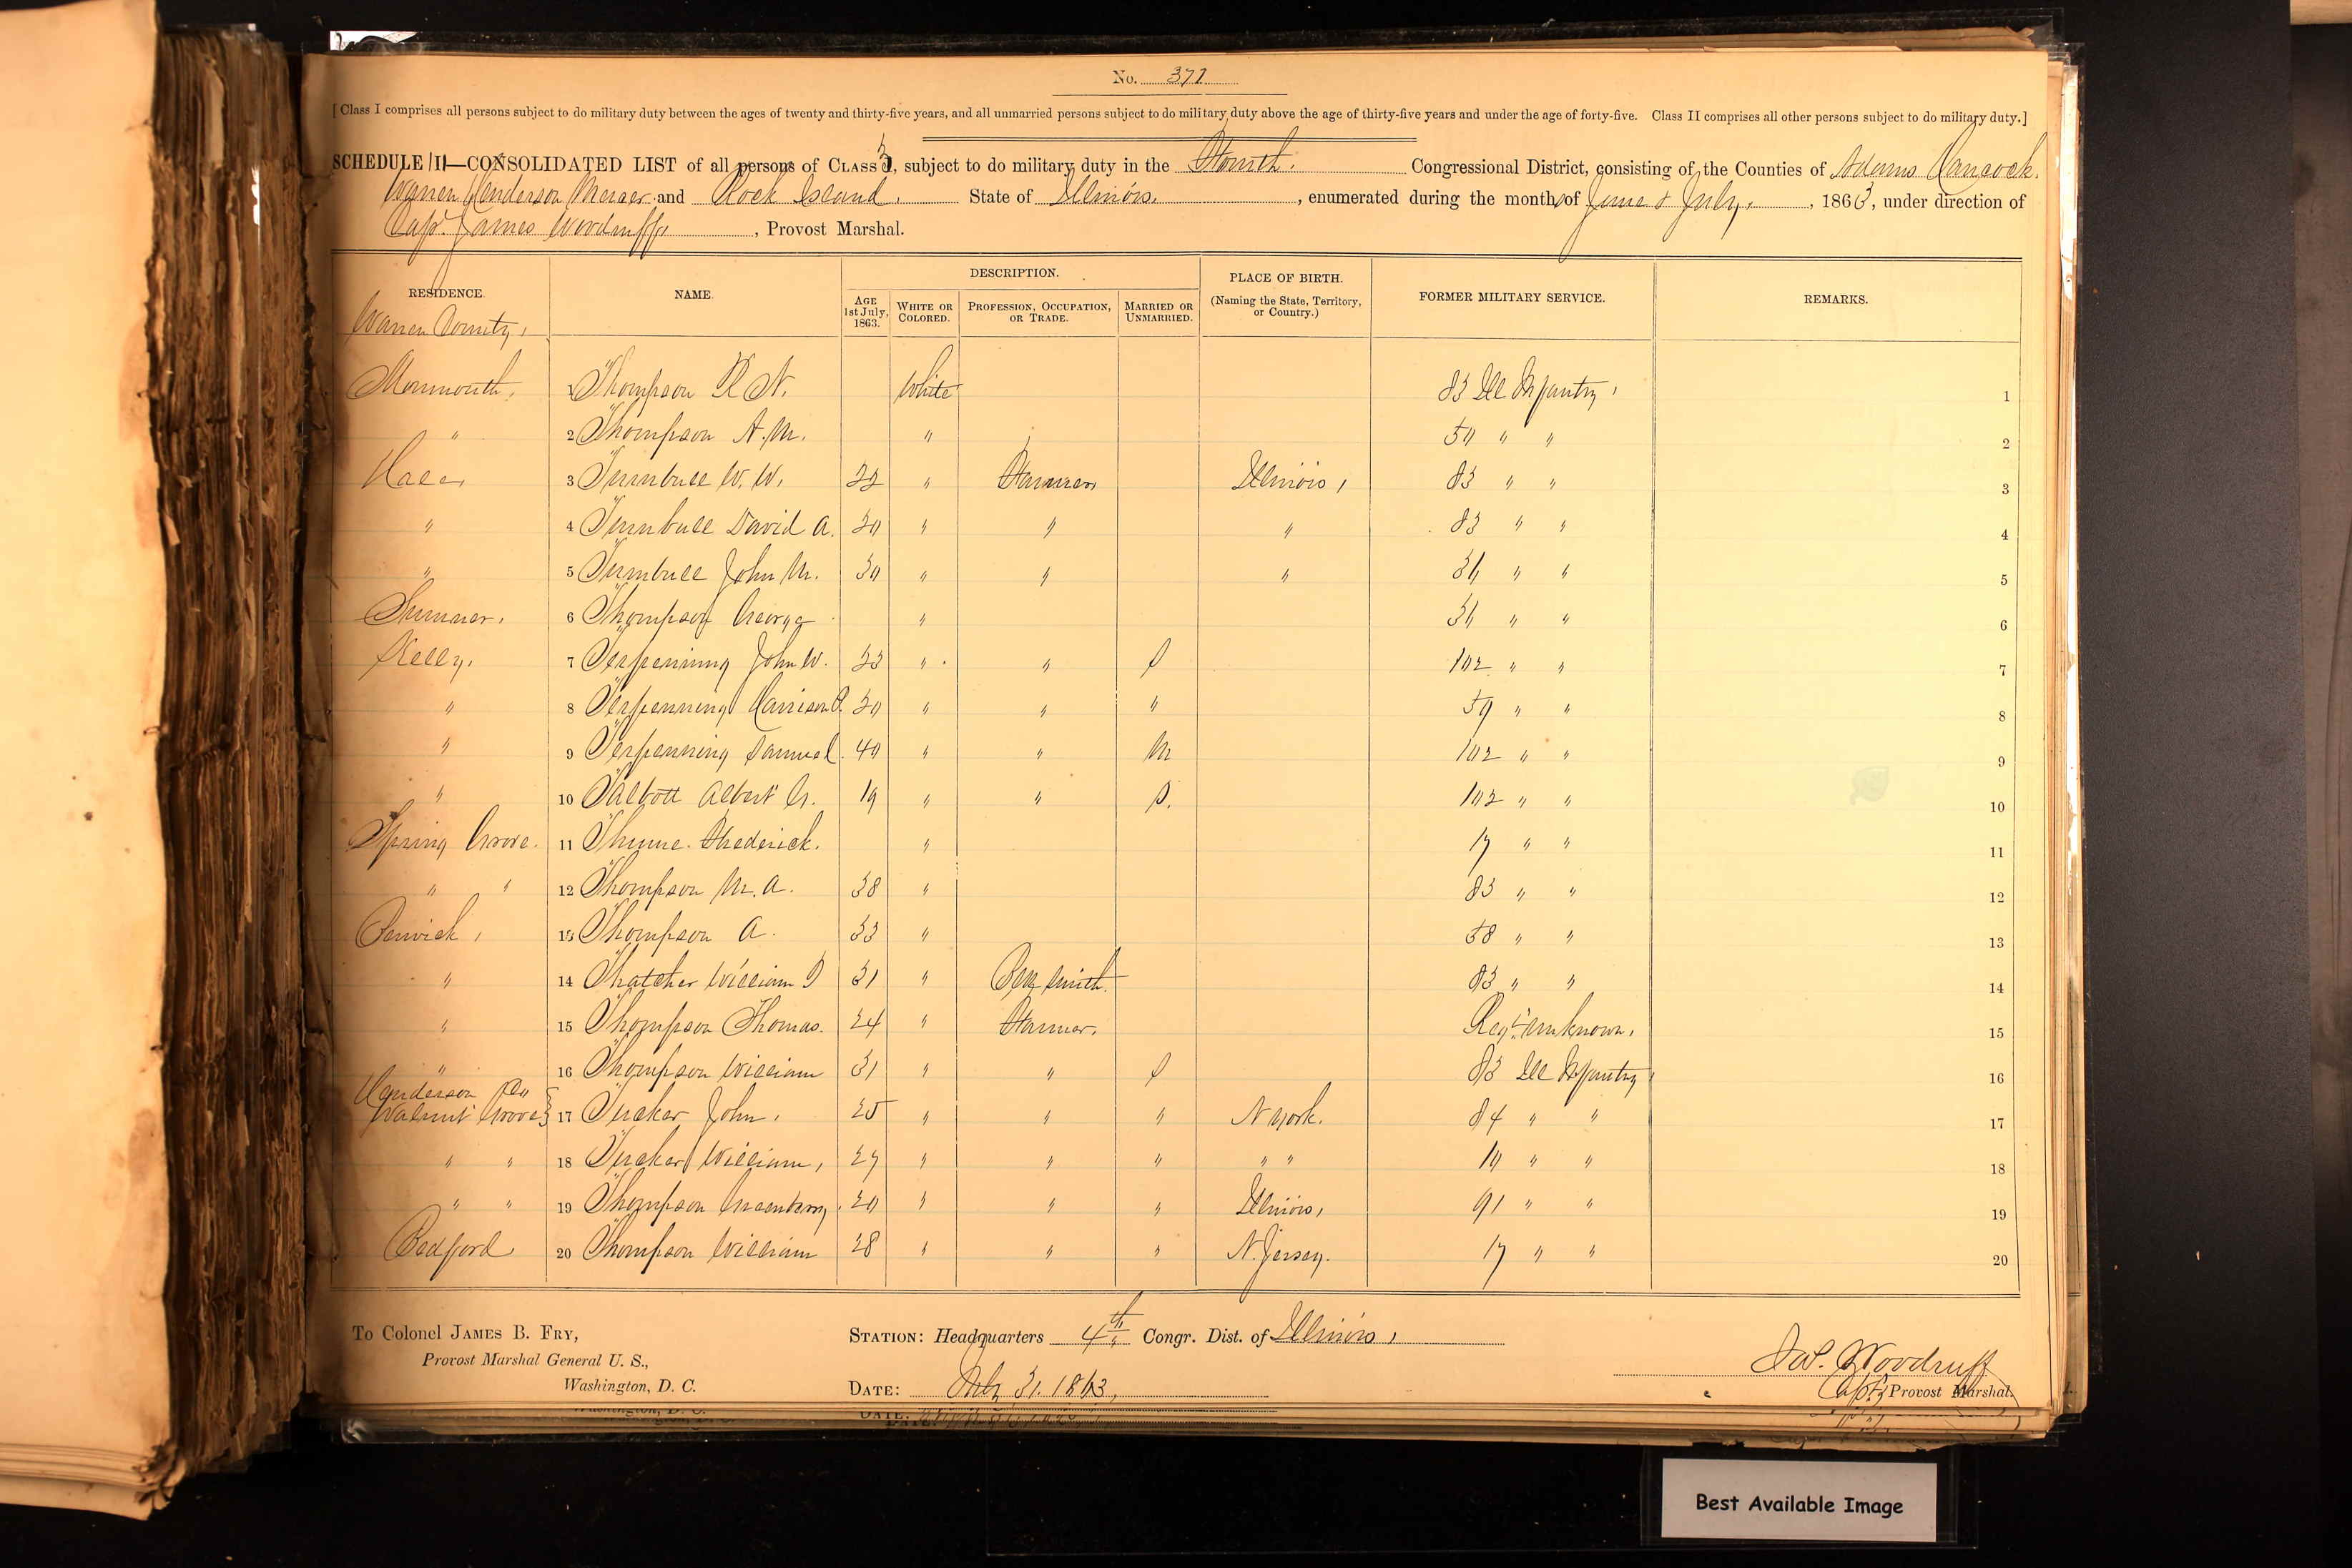 No. 371
[Class I comprises all persons subject to do military duty between the ages of twenty and thirty-five years, and all unmarried persons subject to do military duty above the age of thirty-five years and under the age of forty-five. Class II comprises all other persons subject to do military duty.]
SCHEDULE II—CONSOLIDATED LIST of all persons of CLASS 3, subject to do military duty in the Fourth. Congressional District, consisting of the Counties of Adams Hancock.
Warren Henderson Mercer and Rock Island. State of Illinois., enumerated during the month of June & July., 1863, under direction of
Capt. James Woodruff, Provost Marshal.
RESIDENCE. NAME. DESCRIPTION. PLACE OF BIRTH. (Naming the State, Territory, or Country.) FORMER MILITARY SERVICE. REMARKS.
AGE 1st July, 1863. WHITE OR COLORED. PROFESSION, OCCUPATION, OR TRADE. MARRIED OR UNMARRIED.
Warren County,
Monmouth. Thompson R N. White 83 Ill Infantry, 1
" 2 Thompson A. M. " 50 " " 2
Hale, 3 Turnbull W. W. 22 " Farmer Illinois, 83 " " 3
" 4 Turnbull David A. 20 " " " 83 " " 4
" 5 Turnbull John M. 30 " " " 36 " " 5
Sumner. 6 Thompson George " 36 " " 6
Kelly. 7 Terpenning John W. 23 " " S 102 " " 7
" 8 Terpenning Harrison 20 " " " 59 " " 8
" 9 Terpenning Samuel 40 " " M 102 " " 9
" 10 Talbott Albert G. 19 " " S. 102 " " 10
Spring Grove. 11 Frederick. " 17 " " 11
" " 12 Thompson M. A. 38 " 83 " " 12
Berwick, 13 Thompson A. 33 " 58 " " 13
" 14 Thatcher William 31 " Blk Smith. 83 " " 14
" 15 Thompson Thomas. 24 " Farmer. Regt unknown. 15
" 16 Thompson William 31 " " S 83 Ill Infantry 16
Henderson Co
Walnut Grove } 17 Tucker John. 25 " " " N York. 84 " " 17
" " 18 Tucker William, 27 " " " " " 10 " " 18
" " 19 Thompson Greenberry 20 " " " Illinois, 91 " " 19
Bedford. 20 Thompson William 28 " " " N. Jersey. 17 " " 20
To Colonel JAMES B. FRY,
Provost Marshal General U. S.,
Washington, D. C.
STATION: Headquarters 4th Congr. Dist. of Illinois,
DATE: July 31. 1863,
Jas. Woodruff
Capt & Provost Marshal.
Best Available Image